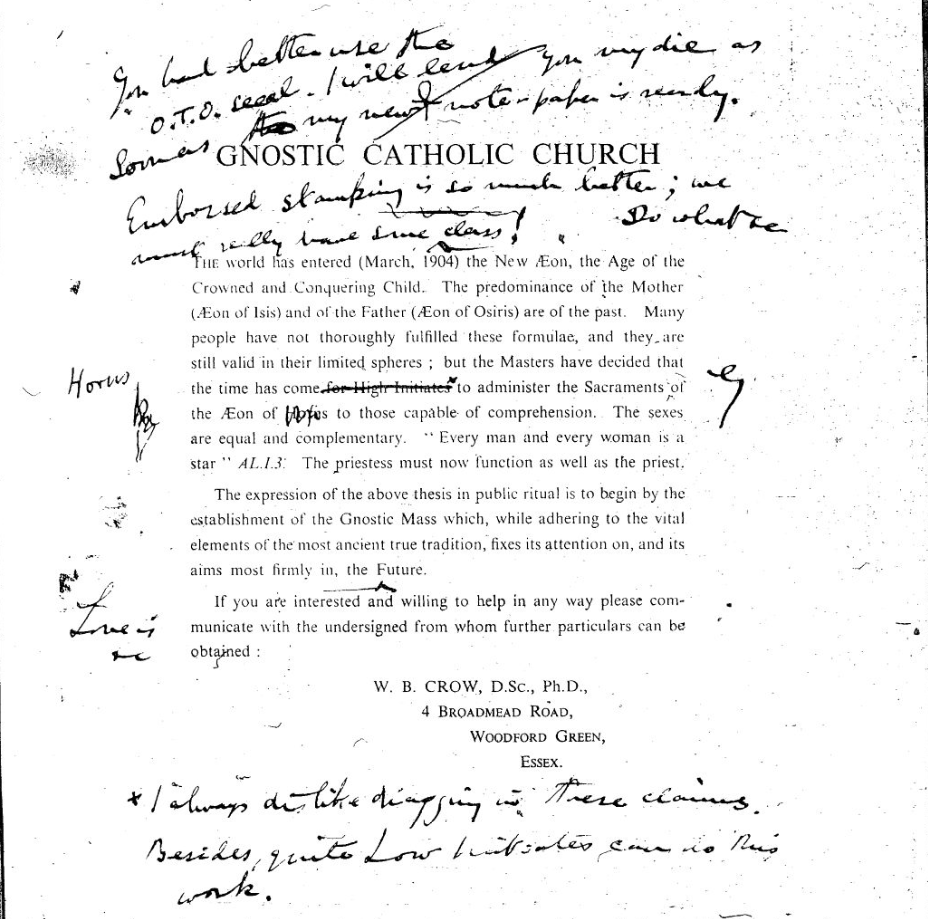 You had better use the
O.T.O. seal. I will lend you my die as
soon as my new note-paper is ready.
GNOSTIC CATHOLIC CHURCH
Embossed stamping is so much better; we
must really have some class! Do what &c
THE world has entered (March, 1904) the New Æon, the Age of the
Crowned and Conquering Child. The predominance of the Mother
(Æon of Isis) and of the Father (Æon of Osiris) are of the past. Many
people have not thoroughly fulfilled these formulae, and they are
still valid in their limited spheres ; but the Masters have decided that
Horus
the time has come for High Initiates* to administer the Sacraments of
the Æon of to those capable of comprehension. The sexes
are equal and complementary. “ Every man and every woman is a
star ” AL.I.3. The priestess must now function as well as the priest.
The expression of the above thesis in public ritual is to begin by the
establishment of the Gnostic Mass which, while adhering to the vital
elements of the most ancient true tradition, fixes its attention on, and its
aims most firmly in, the Future.
If you are interested and willing to help in any way please com-
Love is
&c
municate with the undersigned from whom further particulars can be
obtained :
W. B. CROW, D.Sc., Ph.D.,
4 BROADMEAD ROAD,
WOODFORD GREEN,
ESSEX.
* I always dislike dragging in these claims.
Besides, quite Low Initiates can do this
work.